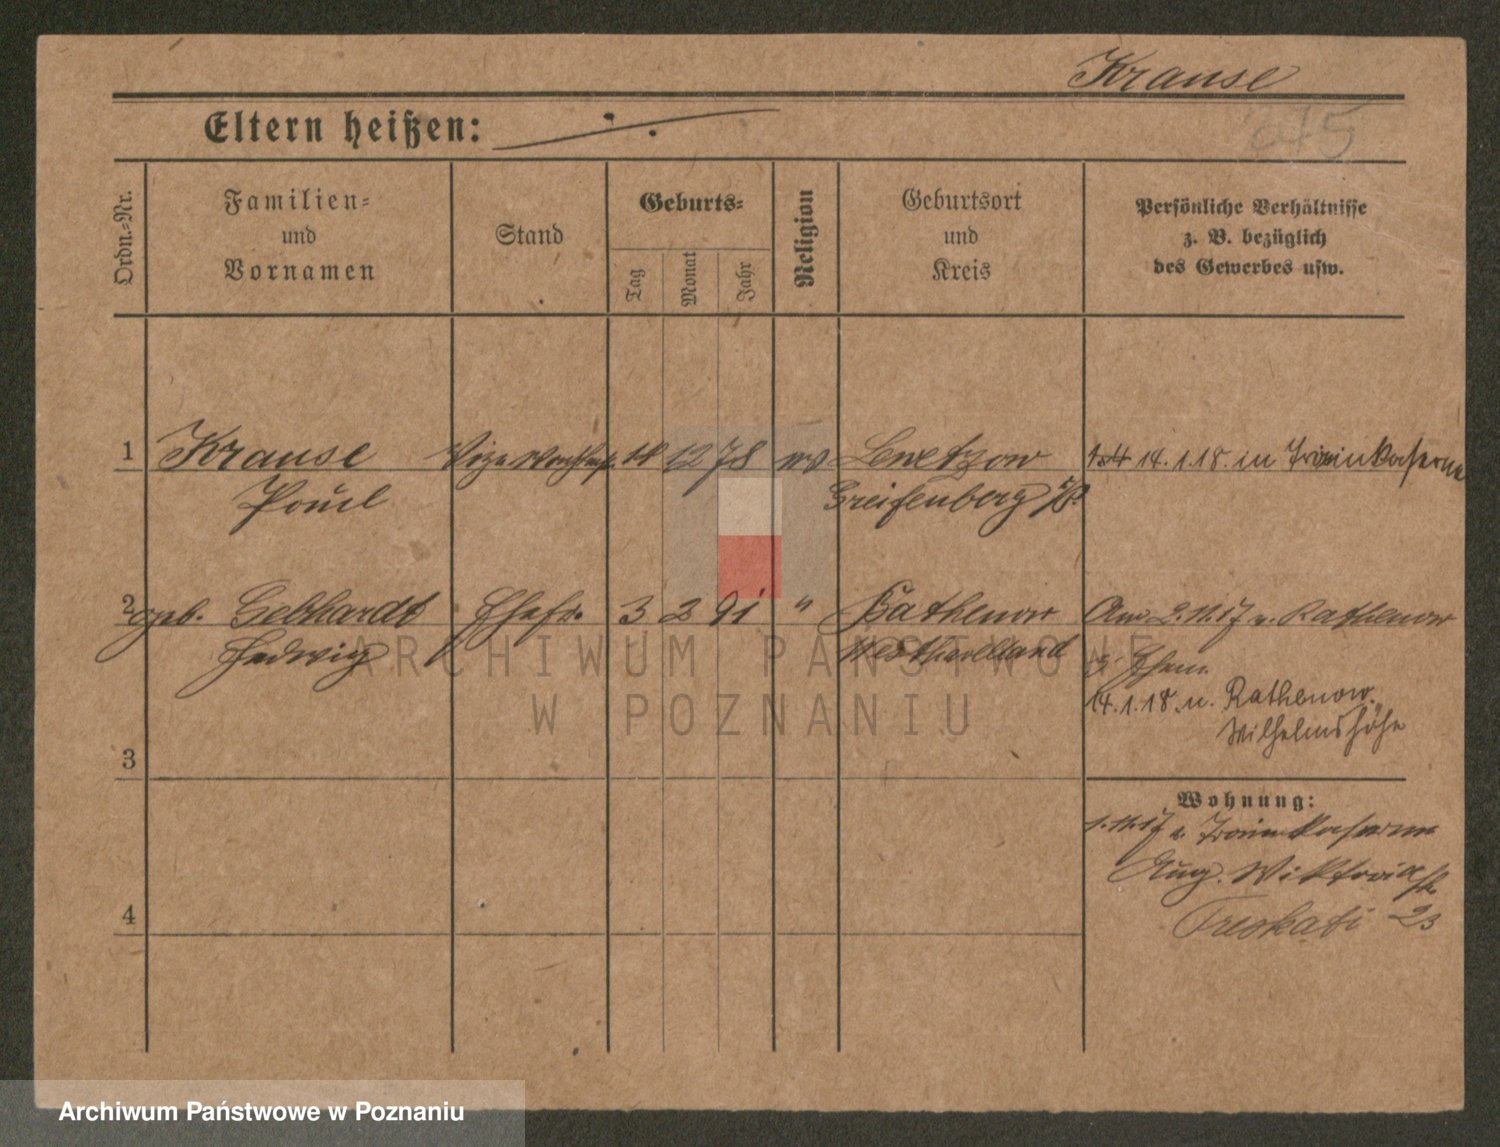 Krause
Eltern heißen:
Ordn.-Nr.
Familien-
und
Vornamen
Stand
Geburts-
Tag
Monat
Jahr
Religion
Geburtsort
und
Kreis
Persönliche Verhältnisse
z. B. bezüglich
des Gewerbes usw.
1 Krause 12 78 14. 1. 18. in Trainkaserne
Paul Greifenberg
2 geb. Gebhardt Ehefr. 3 2 91 " Rathenow Am 2.11.17 v. Rathenow
Hedwig Westhavelland
z. Ehem.
14. 1. 18. n. Rathenow.
Wilhelmshöhe
3
Wohnung:
1.11.17 Trainkaserne
Aug. Viktoria
4
23
ARCHIWUM PAŃSTWOWE
W POZNANIU
Archiwum Państwowe w Poznaniu